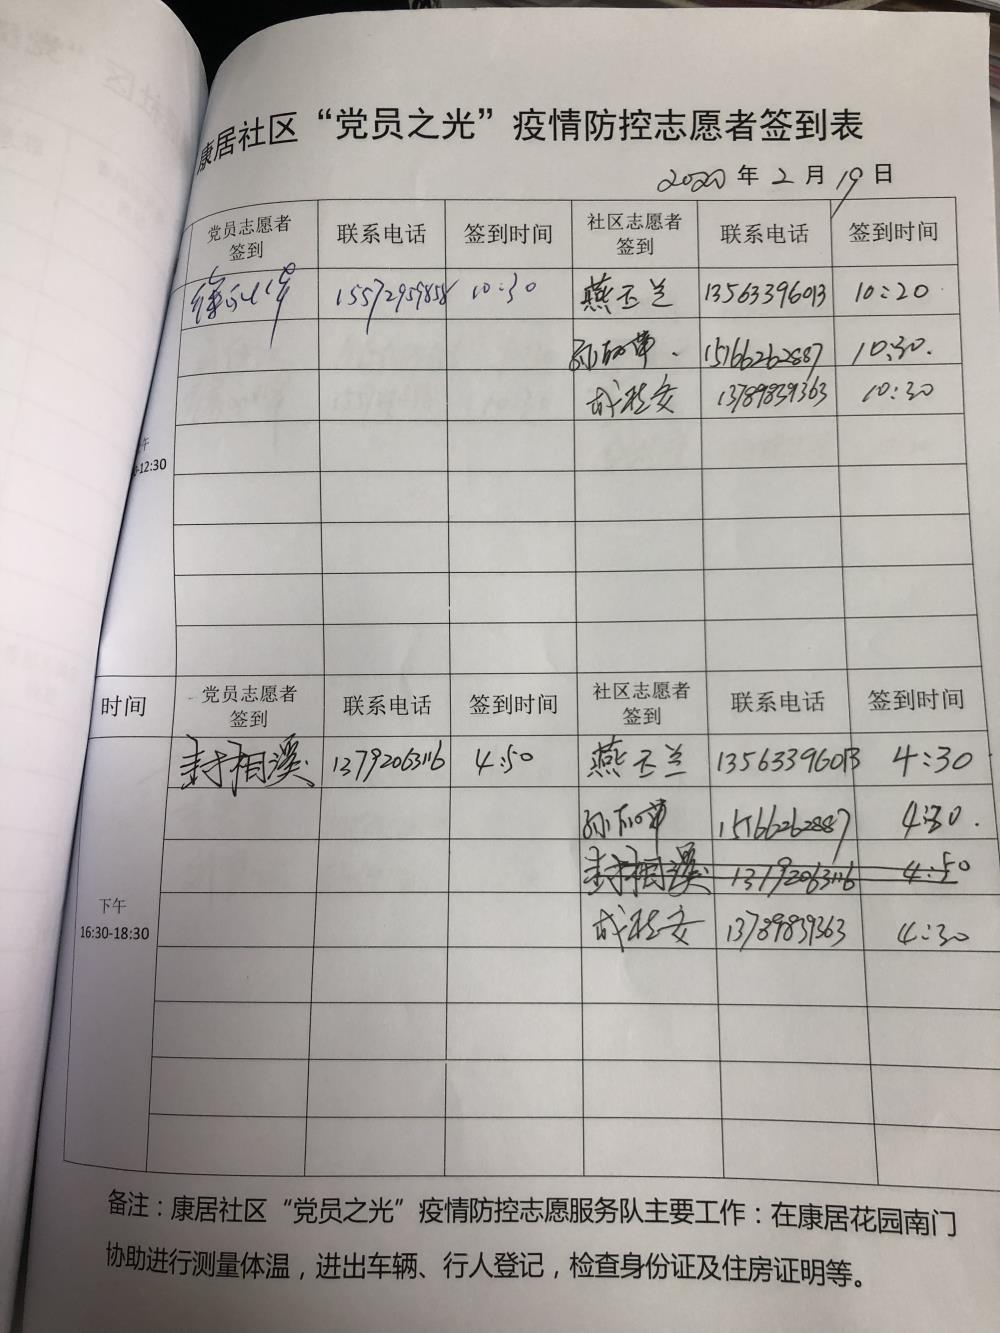 康居社区“党员之光”疫情防控志愿者签到表
2020年2月19日
党员志愿者签到 联系电话 签到时间 社区志愿者签到 联系电话 签到时间
15572959858 10:30 燕玉兰 13563396013 10:20
15166262887 10:30.
13789839363 10:30
午
-12:30
时间 党员志愿者签到 联系电话 签到时间 社区志愿者签到 联系电话 签到时间
封相溪 13792063116 4:50 燕玉兰 13563396013 4:30
15166262887 4:30.
封相溪 13792063116 4:50
13789839363 4:30
下午
16:30-18:30
备注：康居社区“党员之光”疫情防控志愿服务队主要工作：在康居花园南门
协助进行测量体温，进出车辆、行人登记，检查身份证及住房证明等。